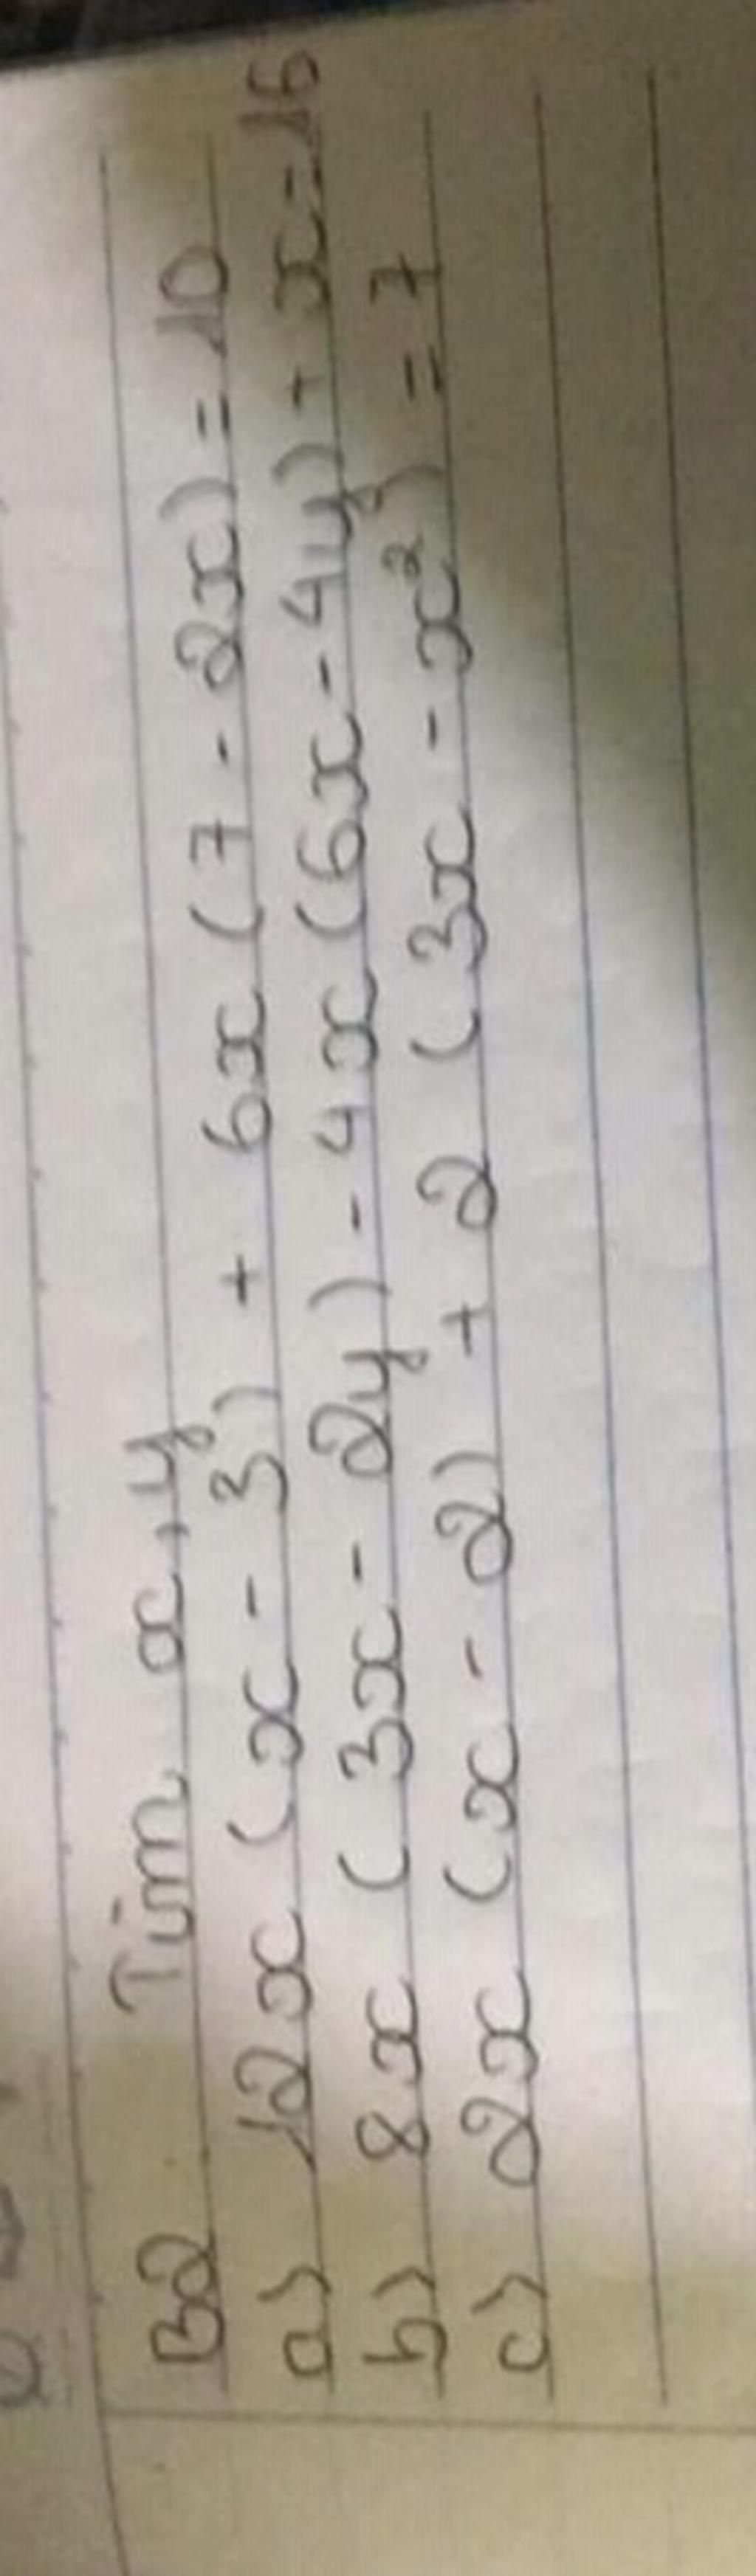 B2 Tìm x, y
a) 12x (x - 3) + 6x (7 - 2x) = 10
b) 8x (3x - 2y) - 4x (6x - 4y) + x - 16
c) 2x (x - 2) + 2 (3x - x²) = 7